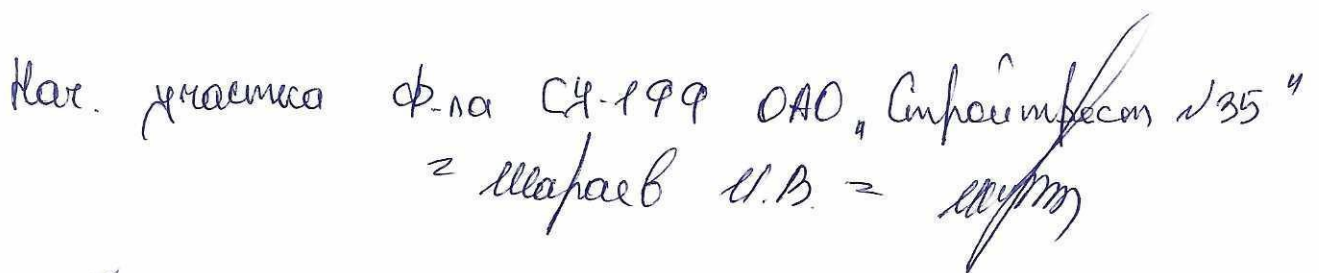 Нач. участка ф-ла СУ-199 ОАО „Стройтрест №35"
= Шараев И.В. =